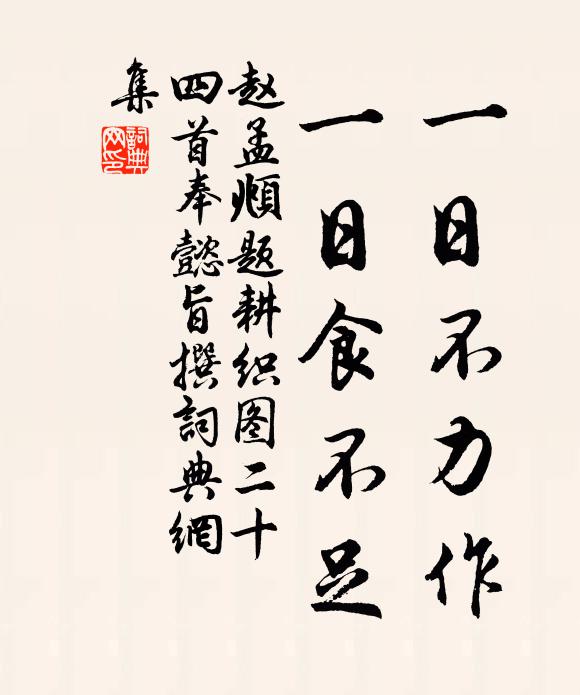 一日不力作
一日食不足
赵孟頫题耕织图二十
四首奉懿旨撰詞典網
集
詞典
网印